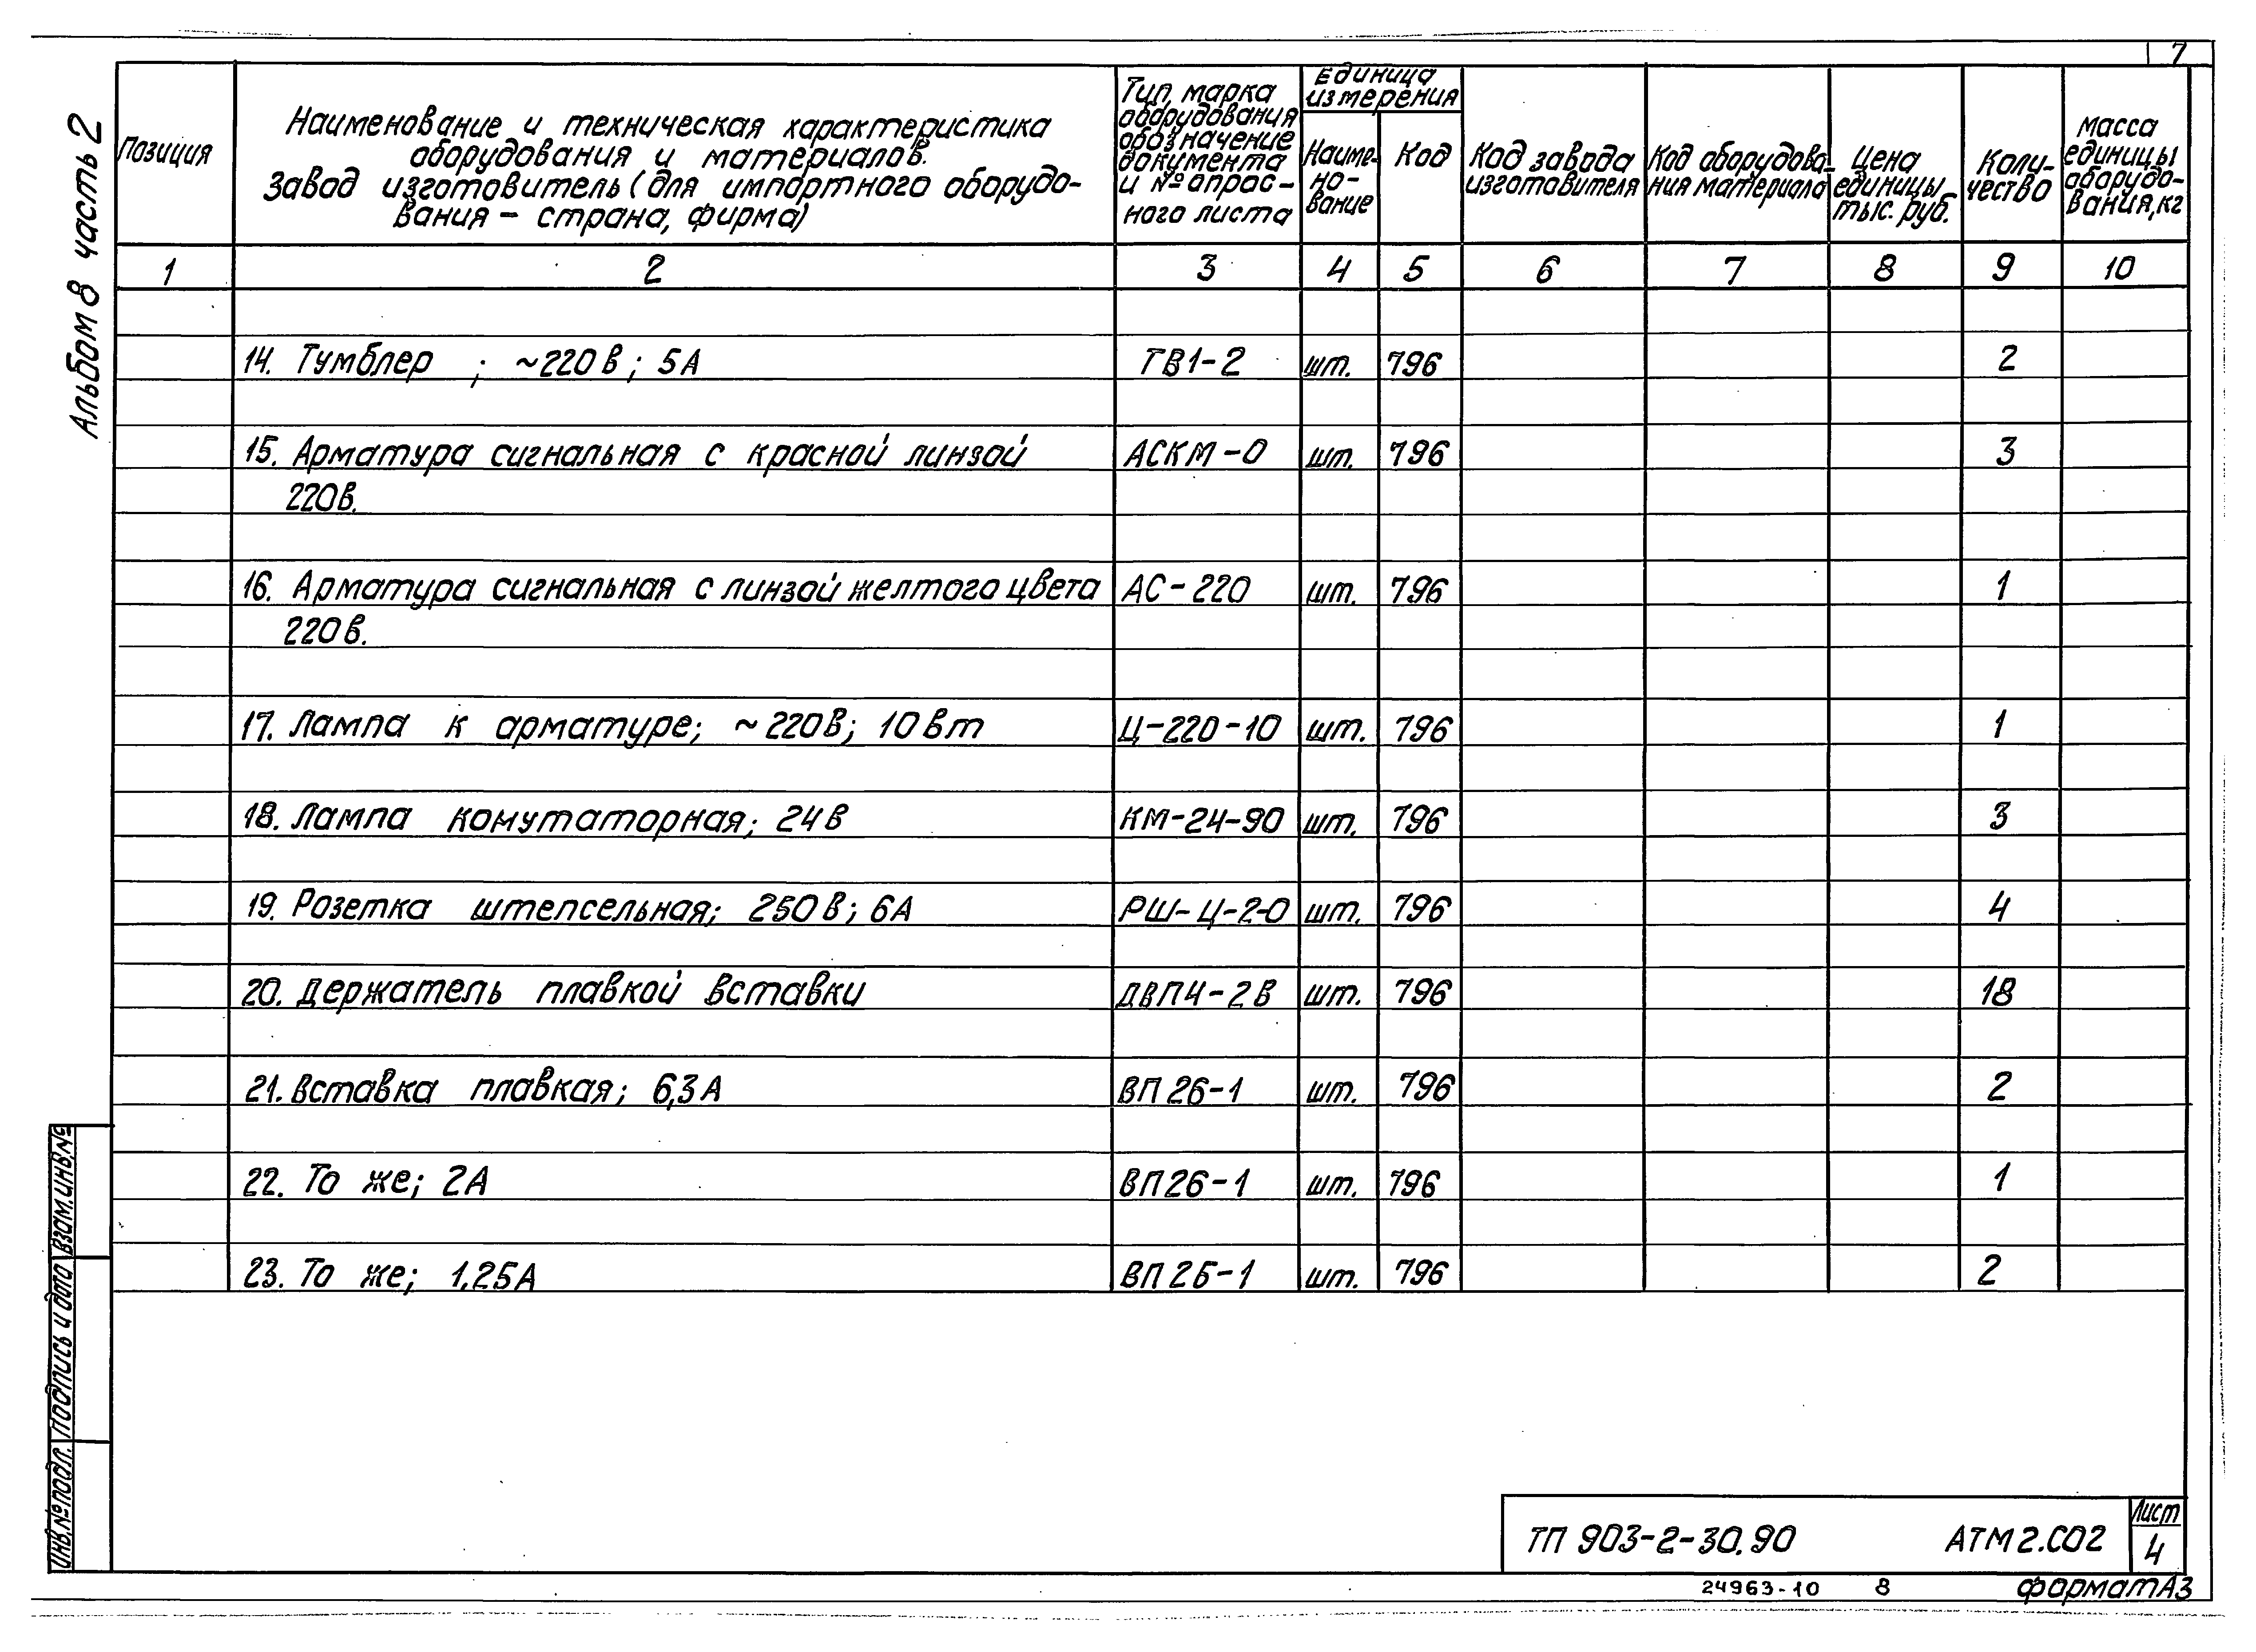 7
Альбом 8 часть 2
Позиция
Наименование и техническая характеристика
оборудования и материалов.
Завод изготовитель (для импортного оборудо-
вания - страна, фирма)
Тип, марка
оборудования
обозначение
документа
и № опрос-
ного листа
Единица
измерения
Наиме-
но-
вание
Код
Код завода
изготовителя
Код оборудова-
ния материала
Цена
единицы
тыс. руб.
Коли-
чество
Масса
единицы
оборудо-
вания, кг
1 2 3 4 5 6 7 8 9 10
14. Тумблер ; ~220в; 5А ТВ1-2 шт. 796 2
15. Арматура сигнальная с красной линзой АСКМ-0 шт. 796 3
220в.
16. Арматура сигнальная с линзой желтого цвета АС-220 шт. 796 1
220в.
17. Лампа к арматуре; ~220в; 10вт Ц-220-10 шт. 796 1
18. Лампа комутаторная; 24в КМ-24-90 шт. 796 3
19. Розетка штепсельная; 250в; 6А РШ-Ц-2-0 шт. 796 4
20. Держатель плавкой вставки ДВП4-2В шт. 796 18
21. Вставка плавкая; 6,3А ВП26-1 шт. 796 2
22. То же; 2А ВП26-1 шт. 796 1
23. То же; 1,25А ВП2Б-1 шт. 796 2
Взам.инв.№
Подпись и дата
Инв.№подл.
ТП 903-2-30.90 АТМ2.СО2
Лист
4
24963-10 8 Формат А3